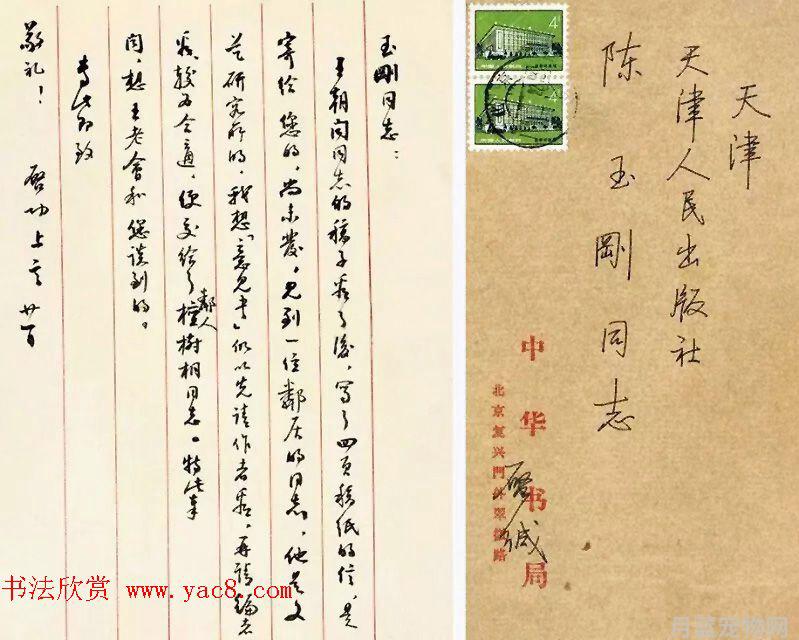 玉剛同志：
王朝闻同志的稿子看了後，写了四页稿纸的信，是
寄给您的，尚未发，见到一位鄰居的同志，他是文
艺研究所的，我想「意见书」似以先请作者看，再请编者
看，较为合适，便交给了鄰人
樹相同志。特此奉
闻，想王老會和您谈到的。
专此即致
敬礼！
启功上言 廿一日
天津
天津人民出版社
陈玉剛同志
中华书局
北京复兴門外翠微路
启缄
4
4
书法欣赏 www.yac8.com